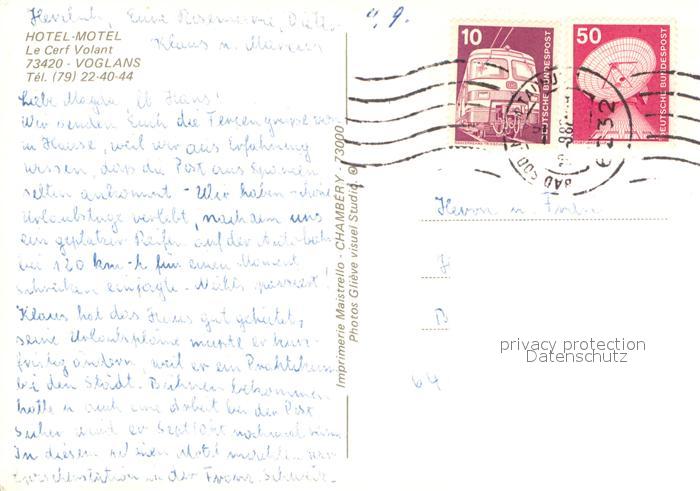 Herzlich, Eure
Klaus u.
4. 9.
HOTEL-MOTEL
Le Cerf Volant
73420 - VOGLANS
Tél. (79) 22-40-44
Liebe Magda, lb Hans!
Wir senden Euch die Feriengrüsse von
zu Hause, weil wir aus Erfahrung
wissen, dass die Post aus Spanien
selten ankommt - Wir haben schöne
Urlaubstage verlebt, nachdem uns
ein geplatzter Reifen auf der Autobahn
bei 120 km-h für einen Moment
Schrecken einjagte - Nichts passiert!
Klaus hat das Haus gut gehütet,
seine Urlaubspläne musste er kurz-
fristig ändern, weil er ein Praktikum
bei den Städt. Bühnen bekommen
hatte u. auch eine Arbeit bei der Post
Sicher wird er Sept/Okt nochmal
In diesem schönen Motel machten wir
Zwischenstation in der Franz. Schweiz -
Imprimerie Maistrello - CHAMBÉRY - 73000
Photos Gliève visuel Studio ©
10
DEUTSCHE BUNDESPOST
50
DEUTSCHE BUNDESPOST
BAD
6232
Herrn u. Frau
H
B
64
privacy protection
Datenschutz